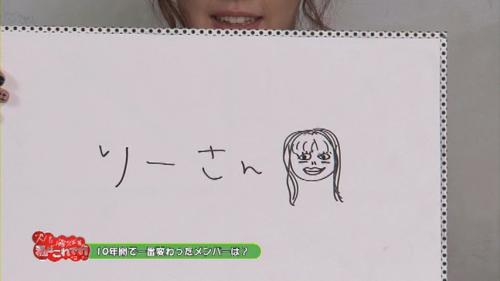 りーさん
10年間で一番変わったメンバーは？